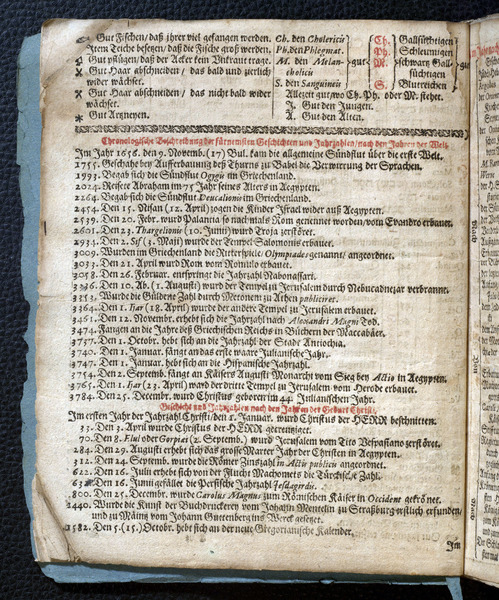 Gut Fischen/ daß jhrer viel gefangen werden.
Item Teiche besetzen/ daß die Fische groß werden.
Gut pflügen/ daß der Acker kein Unkraut trage.
Gut Haar abschneiden/ das bald und zierlich
wächset.
Gut Haar abschneiden/ das nicht bald wider
wächset.
Gut Artzneyen.
Ch. den Cholericis
Ph. den Phlegmat.
M. den Melan-
cholicis
S. den Sanguineis
gut
Ch.
Ph.
M.
S.
Gallsüchtigen
Schleumigen
schwartz Gall-
süchtigen
Blutreichen
Allezeit gut/wo Ch. Ph. oder M. stehet.
J. Gut den Jungen.
A. Gut den Alten.
Chronologische Beschreibung der fürnemsten Geschichten und Jahrzahlen/ nach den Jahren der Welt.
Im Jahr 1656. den 9. Novemb. (17) Bul. kam die allgemeine Sündflut über die erste Welt.
1755. Geschahe bey Aufferbauung deß Thurns zu Babel die Verwirrung der Sprachen.
1993. Begab sich die Sündflut Ogygis im Griechenland.
2024. Reisete Abraham im 75 Jahr seines Alters in Aegypten.
2264. Begab sich die Sündflut Deucalionis im Griechenland.
2454. Den 15. Nisan (12. April) zogen die Kinder Israel wider auß Aegypten.
2539. Den 20. Febr. ward Palantia so nachmals Rom genennet worden/ vom Evandro erbauet.
2601. Den 23. Thargelionis (10. Junii) ward Troja zerstöret.
2934. Den 2. Sif (3. Maji) wurde der Tempel Salomonis erbauet.
3009. Wurden im Griechenland die Ritterspiele/ Olympiades genannt/ angeordnet.
3033. Den 21. April ward Rom vom Romulo erbauet.
3058. Den 26. Februar. entspringt die Jahrzahl Nabonassari.
3396. Den 10. Ab. (1. Augusti) ward der Tempel zu Jerusalem durch Nebucadnezar verbrannt.
3353. Wurde die Güldene Zahl durch Metonem zu Athen publiciret.
3364. Den 1. Ijar (18. April) wurde der andere Tempel zu Jerusalem erbauet.
3461. Den 12. Novemb. erhebt sich die Jahrzahl nach Alexandri Magni Tod.
3474. Fangen an die Jahre deß Griechischen Reichs in Büchern der Maccabäer.
3737. Den 1. Octobr. hebt sich an die Jahrzahl der Stadt Antiochia.
3740. Den 1. Januar. fängt an das erste waare Julianische Jahr.
3747. Den 1. Januar. hebt sich an die Hispanische Jahrzahl.
3754. Den 2. Septemb. fängt an Käisers Augusti Monarchi vom Sieg bey Actio in Aegypten.
3765. Den 1. Ijar (23. April) ward der dritte Tempel zu Jerusalem vom Herode erbauet.
3784. Den 25. Decembr. ward Christus geboren im 44 Julianischen Jahr.
Geschicht und Jahrzahlen nach den Jahren der Geburt Christi.
Im ersten Jahr der Jahrzahl Christi/ den 1. Januar. ward Christus der HErr beschnitten.
33. Den 3. April wurde Christus der HERR gecreutziget.
70. Den 8. Elul oder Gorpiei (2. Septemb.) wurd Jerusalem vom Tito Vespasiano zerstöret.
284. Den 29. Augusti erhebt sich das grosse Marter Jahr der Christen in Aegypten.
312. Den 24. Septemb. wurde die Römer Zinszahl in Actis publicis angeordnet.
622. Den 16. Julii erhebt sich von der Flucht Machomets die Türckische Zahl.
632. Den 16. Junii gefället die Persische Jahrzahl Jesdagerdis.
800. Den 25. Decembr. wurde Carolus Magnus zum Römischen Käiser in Occident gekrönet.
1440. Wurde die Kunst der Buchdruckerey vom Johann Mentelin zu Straßburg erstlich erfunden/
und zu Mäintz vom Johann Guttenberg ins Werck gesetzet.
1582. Den 5. (15.) Octobr. hebt sich an der neue Gregorianische Kalender.
Im